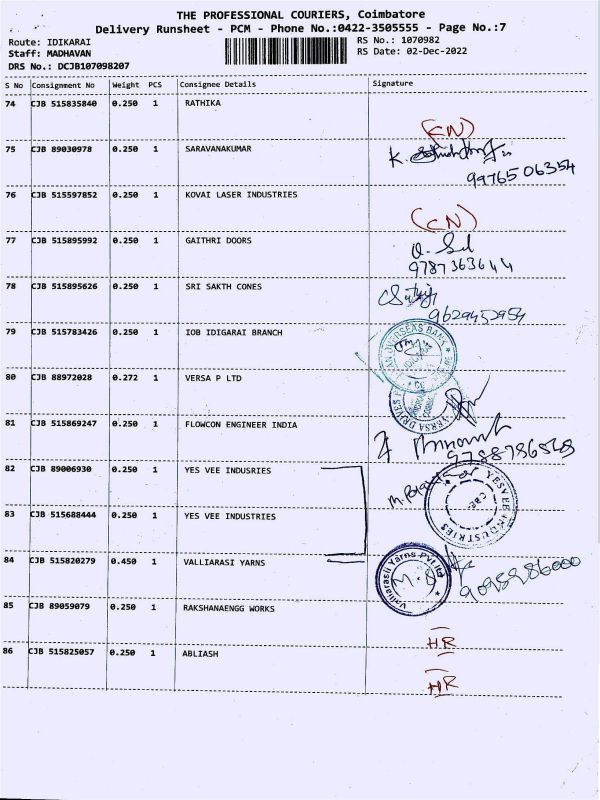 THE PROFESSIONAL COURIERS, Coimbatore
Delivery Runsheet - PCM - Phone No.:0422-3505555 - Page No.:7
Route: IDIKARAI
Staff: MADHAVAN
DRS No.: DCJB107098207
RS No.: 1070982
RS Date: 02-Dec-2022
S No Consignment No Weight PCS Consignee Details Signature
74 CJB 515835840 0.250 1 RATHIKA
(CN)
75 CJB 89030978 0.250 1 SARAVANAKUMAR
K.
9976506354
76 CJB 515597852 0.250 1 KOVAI LASER INDUSTRIES
(CN)
77 CJB 515895992 0.250 1 GAITHRI DOORS
9787363644
78 CJB 515895626 0.250 1 SRI SAKTH CONES
9629452954
79 CJB 515783426 0.250 1 IOB IDIGARAI BRANCH
OVERSEAS BANK
80 CJB 88972028 0.272 1 VERSA P LTD
VERSA DRIVES
81 CJB 515869247 0.250 1 FLOWCON ENGINEER INDIA
82 CJB 89006930 0.250 1 YES VEE INDUSRIES
YESVEE INDUSTRIES
CBE
83 CJB 515688444 0.250 1 YES VEE INDUSTRIES
84 CJB 515820279 0.450 1 VALLIARASI YARNS
Valliarasi Yarns Pvt Ltd
85 CJB 89059079 0.250 1 RAKSHANAENGG WORKS
HR
86 CJB 515825057 0.250 1 ABLIASH
HR